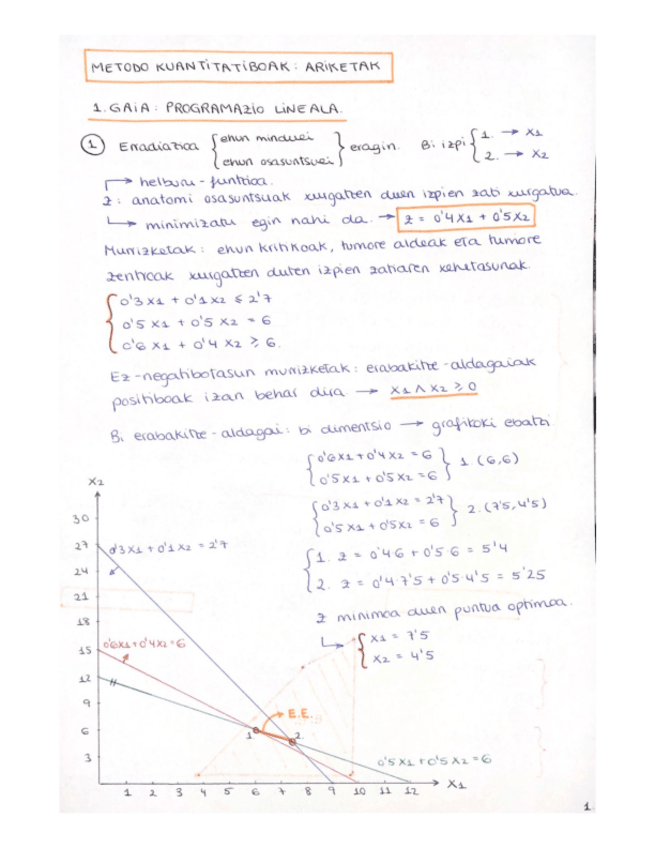 METODO KUANTITATIBOAK: ARIKETAK
1. GAIA: PROGRAMAZIO LINEALA.
1 Erradiazioa { ehun minduei } eragin. Bi izpi { 1. → X1
ehun osasuntsuei 2. → X2
helburu-funtzioa.
z: anatomi osasuntsuak xurgatzen duen izpien zati xurgatua.
minimizatu egin nahi da. → z = 0'4X1 + 0'5X2
Murrizketak: ehun kritikoak, tumore aldeak eta tumore
zentroak xurgatzen duten izpien zatiaren xehetasunak.
0'3 X1 + 0'1 X2 ≤ 2'7
0'5 X1 + 0'5 X2 = 6
0'6 X1 + 0'4 X2 ≥ 6.
Ez-negatibotasun murrizketak: erabakitze-aldagaiak
positiboak izan behar dira → X1 ∧ X2 ≥ 0
Bi erabakitze-aldagai: bi dimentsio → grafikoki ebatzi.
0'6X1 + 0'4X2 = 6
0'5X1 + 0'5X2 = 6 } 1. (6,6)
0'3X1 + 0'1X2 = 2'7
0'5X1 + 0'5X2 = 6 } 2. (7'5, 4'5)
1. z = 0'4·6 + 0'5·6 = 5'4
2. z = 0'4·7'5 + 0'5·4'5 = 5'25
z minimoa duen puntua optimoa.
X1 = 7'5
X2 = 4'5
X2
30
27
0'3X1 + 0'1X2 = 2'7
24
21
18
15
0'6X1 + 0'4X2 = 6
12
9
6
3
E.E.
1
2.
0'5X1 + 0'5X2 = 6
1 2 3 4 5 6 7 8 9 10 11 12 X1
1